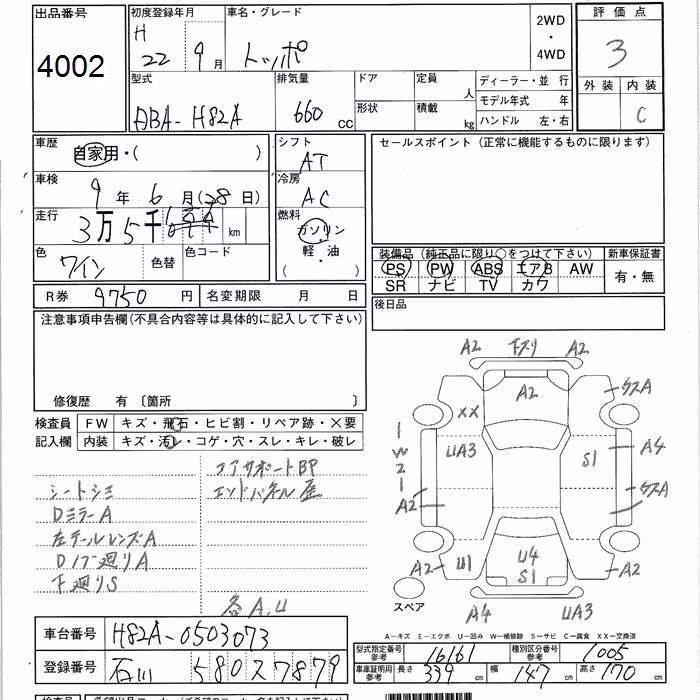 出品番号
4002
初度登録年月
H
22 9月
車名・グレード
トッポ
2WD
・
4WD
評価点
3
外装 内装
C
型式
ABA-H82A
排気量
660 cc
ドア
形状
定員 人
積載 kg
ディーラー・並 行
モデル年式 年
ハンドル 左・右
車歴
自家用・( )
車検
9年 6月(28日)
走行
3万5千 km
色
ワイン
色替
色コード
シフト
AT
冷房
AC
燃料
ガソリン
・
軽・油
( )
セールスポイント(正常に機能するものに限ります)
装備品(純正品に限り○をつけて下さい)
PS PW ABS エアB AW
SR ナビ TV カワ
新車保証書
有・無
R券 9750 円 名変期限 月 日
後日品
注意事項申告欄(不具合内容等は具体的に記入して下さい)
修復歴 有〔箇所 〕
検査員
記入欄
FW キズ・飛石・ヒビ割・リペア跡・X要
内装 キズ・汚レ・コゲ・穴・スレ・キレ・破レ
シートシミ
DミラーA
左テールレンズA
Dドア廻りA
下廻りS
コアサポートBP
エンドパネル
各A,U
A2 下スリ A2
A2
XX
UA3
S1
A4
1
W2
1
A2
A2
U1
U4
S1
A2
A4
UA3
スペア
A-キズ E-エクボ U-凹み W-補修跡 S-サビ C-腐食 XX-交換済
車台番号 H82A-0503073
登録番号 石川 580 ス 7879
型式指定番号
参考
16161
種別区分番号
参考
1005
車庫証明用
参考
長さ 339 幅 147 高さ 170